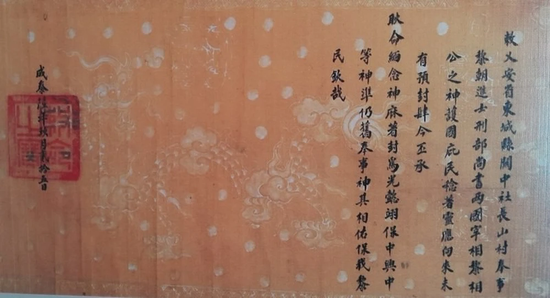 敕乂安省東城縣關中社長山村奉事
黎朝進士刑部尚書兩國宰相黎相
公之神護國庇民稔著靈應向來未
有預封肆今丕承
耿命緬念神庥著封爲光懿翊保中興中
等神準仍舊奉事神其相佑保我黎
民欽哉
成泰年月貳拾五日